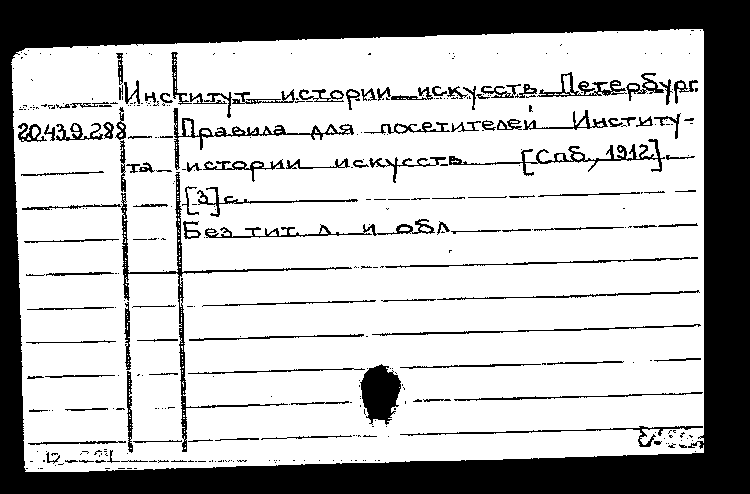 Институт истории искусств. Петербург.
20.43.9.288 Правила для посетителей Институ-
та истории искусств. [Спб., 1912].
[3] с.
Без тит. л. и обл.